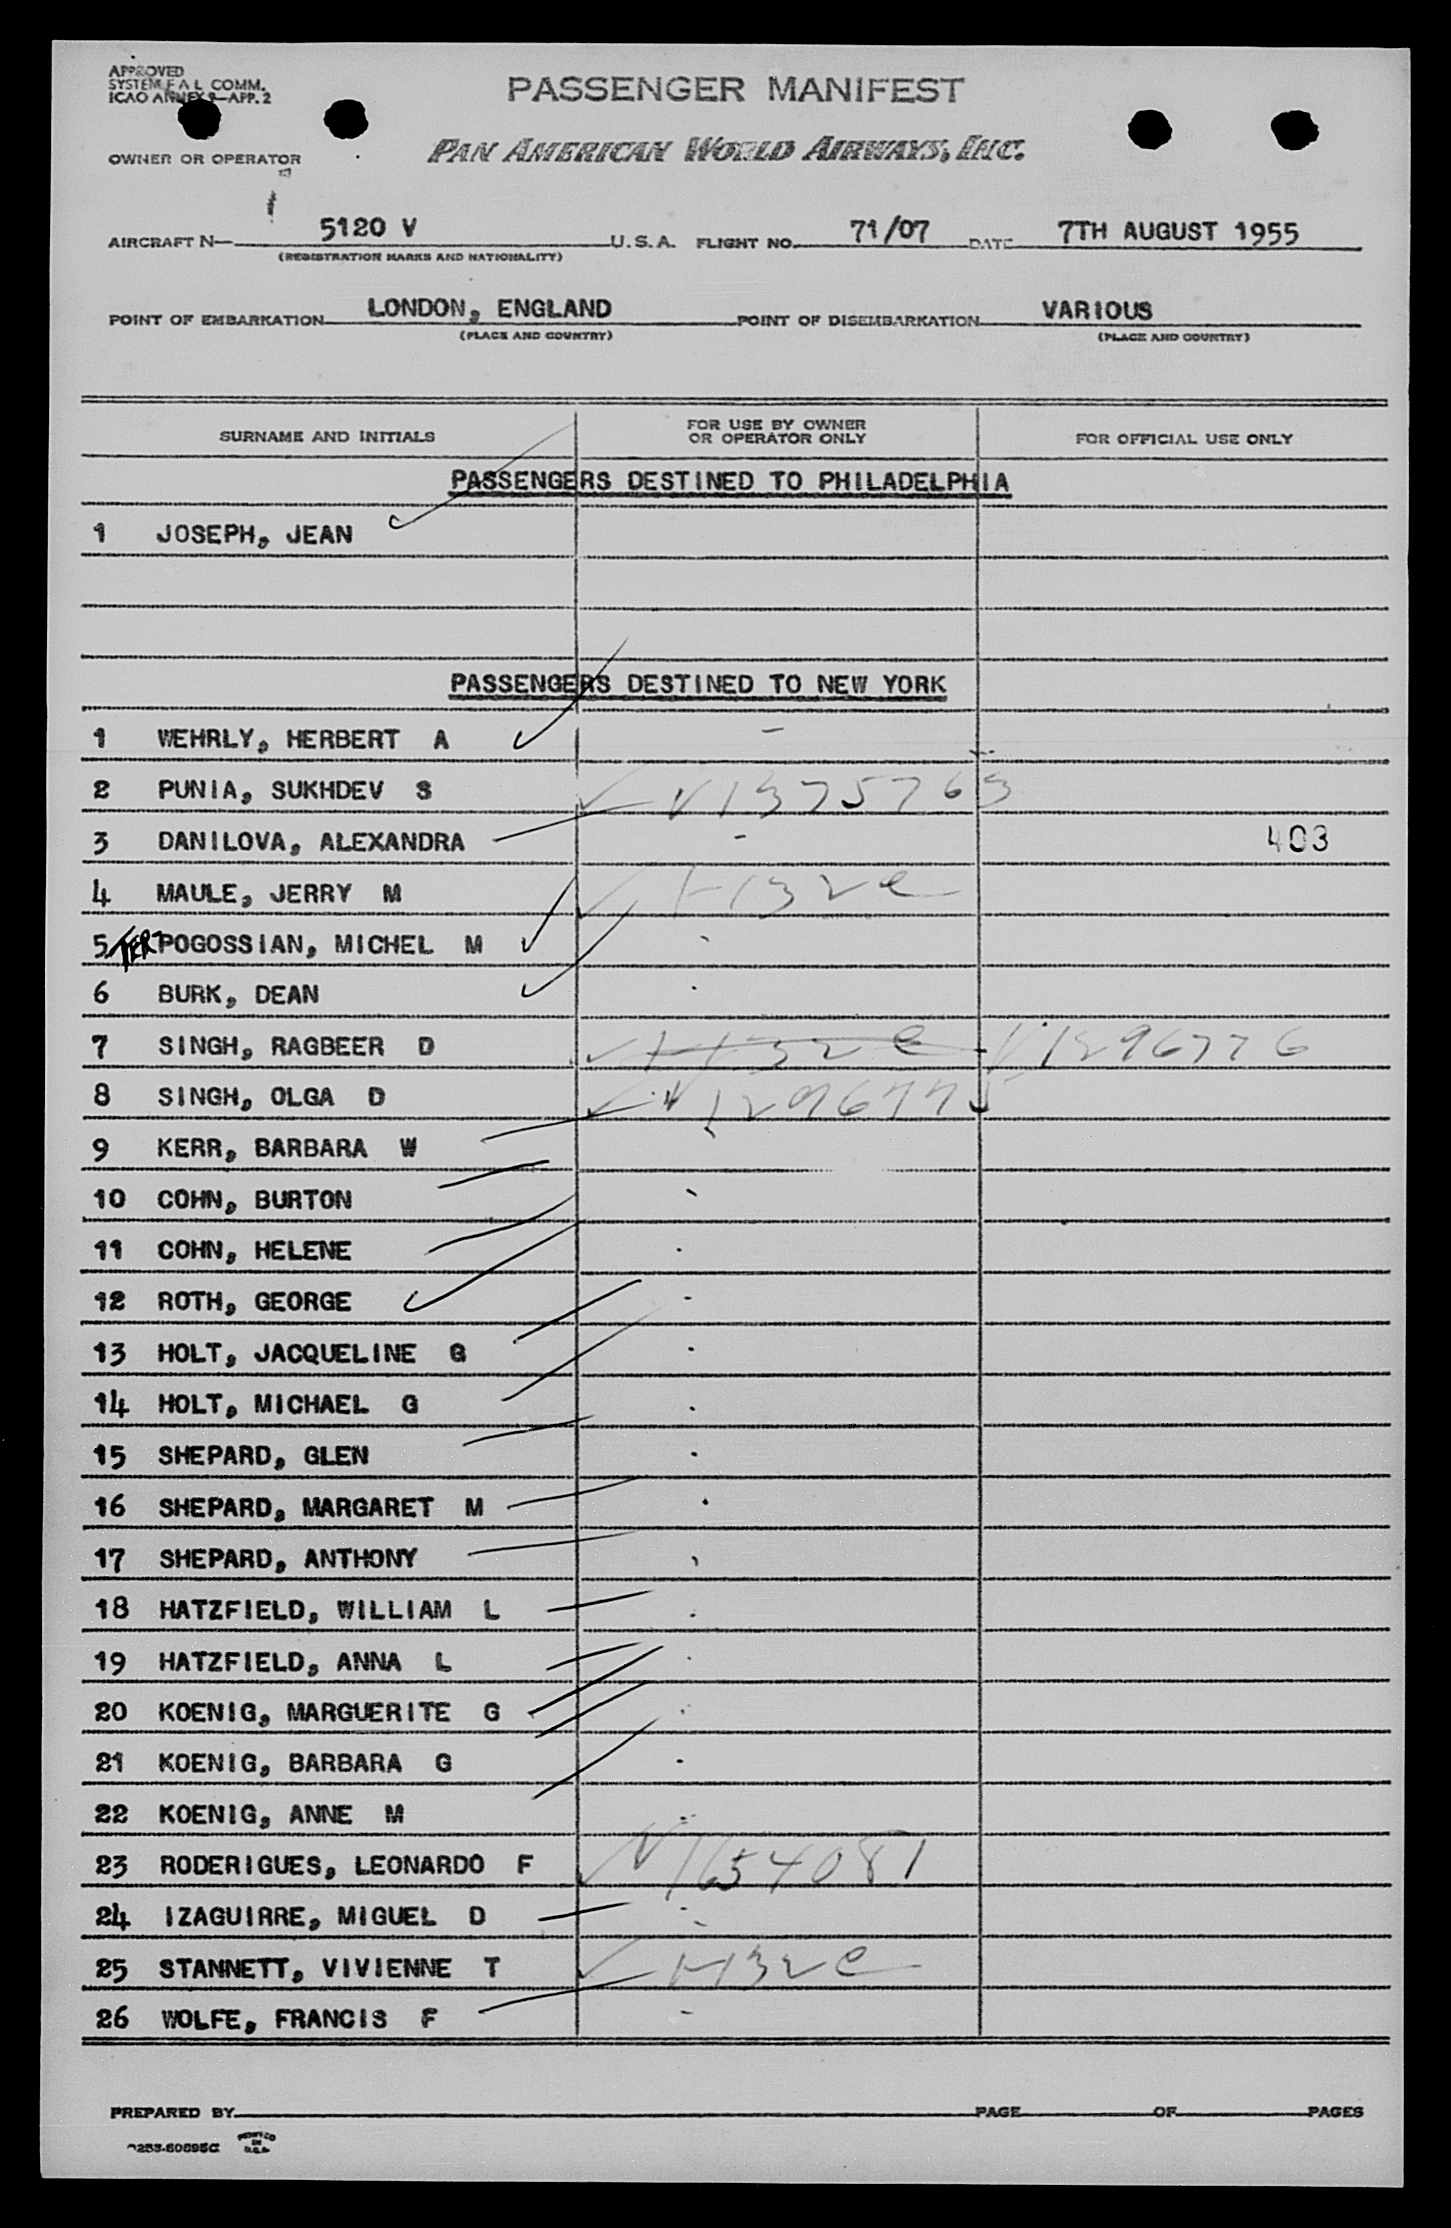 APPROVED
SYSTEM F A L COMM.
ICAO ANNEX 9—APP. 2
PASSENGER MANIFEST
OWNER OR OPERATOR
PAN AMERICAN WORLD AIRWAYS, INC.
AIRCRAFT N— 5120 V U.S.A. FLIGHT NO. 71/07 DATE 7TH AUGUST 1955
(REGISTRATION MARKS AND NATIONALITY)
POINT OF EMBARKATION LONDON, ENGLAND POINT OF DISEMBARKATION VARIOUS
(PLACE AND COUNTRY) (PLACE AND COUNTRY)
SURNAME AND INITIALS FOR USE BY OWNER OR OPERATOR ONLY FOR OFFICIAL USE ONLY
PASSENGERS DESTINED TO PHILADELPHIA
1 JOSEPH, JEAN
PASSENGERS DESTINED TO NEW YORK
1 WEHRLY, HERBERT A
2 PUNIA, SUKHDEV S V1375763
3 DANILOVA, ALEXANDRA 403
4 MAULE, JERRY M
5 TER POGOSSIAN, MICHEL M
6 BURK, DEAN
7 SINGH, RAGBEER D V1296776
8 SINGH, OLGA D V1296775
9 KERR, BARBARA W
10 COHN, BURTON
11 COHN, HELENE
12 ROTH, GEORGE
13 HOLT, JACQUELINE G
14 HOLT, MICHAEL G
15 SHEPARD, GLEN
16 SHEPARD, MARGARET M
17 SHEPARD, ANTHONY
18 HATZFIELD, WILLIAM L
19 HATZFIELD, ANNA L
20 KOENIG, MARGUERITE G
21 KOENIG, BARBARA G
22 KOENIG, ANNE M
23 RODERIGUES, LEONARDO F V1654081
24 IZAGUIRRE, MIGUEL D
25 STANNETT, VIVIENNE T
26 WOLFE, FRANCIS F
PREPARED BY PAGE OF PAGES